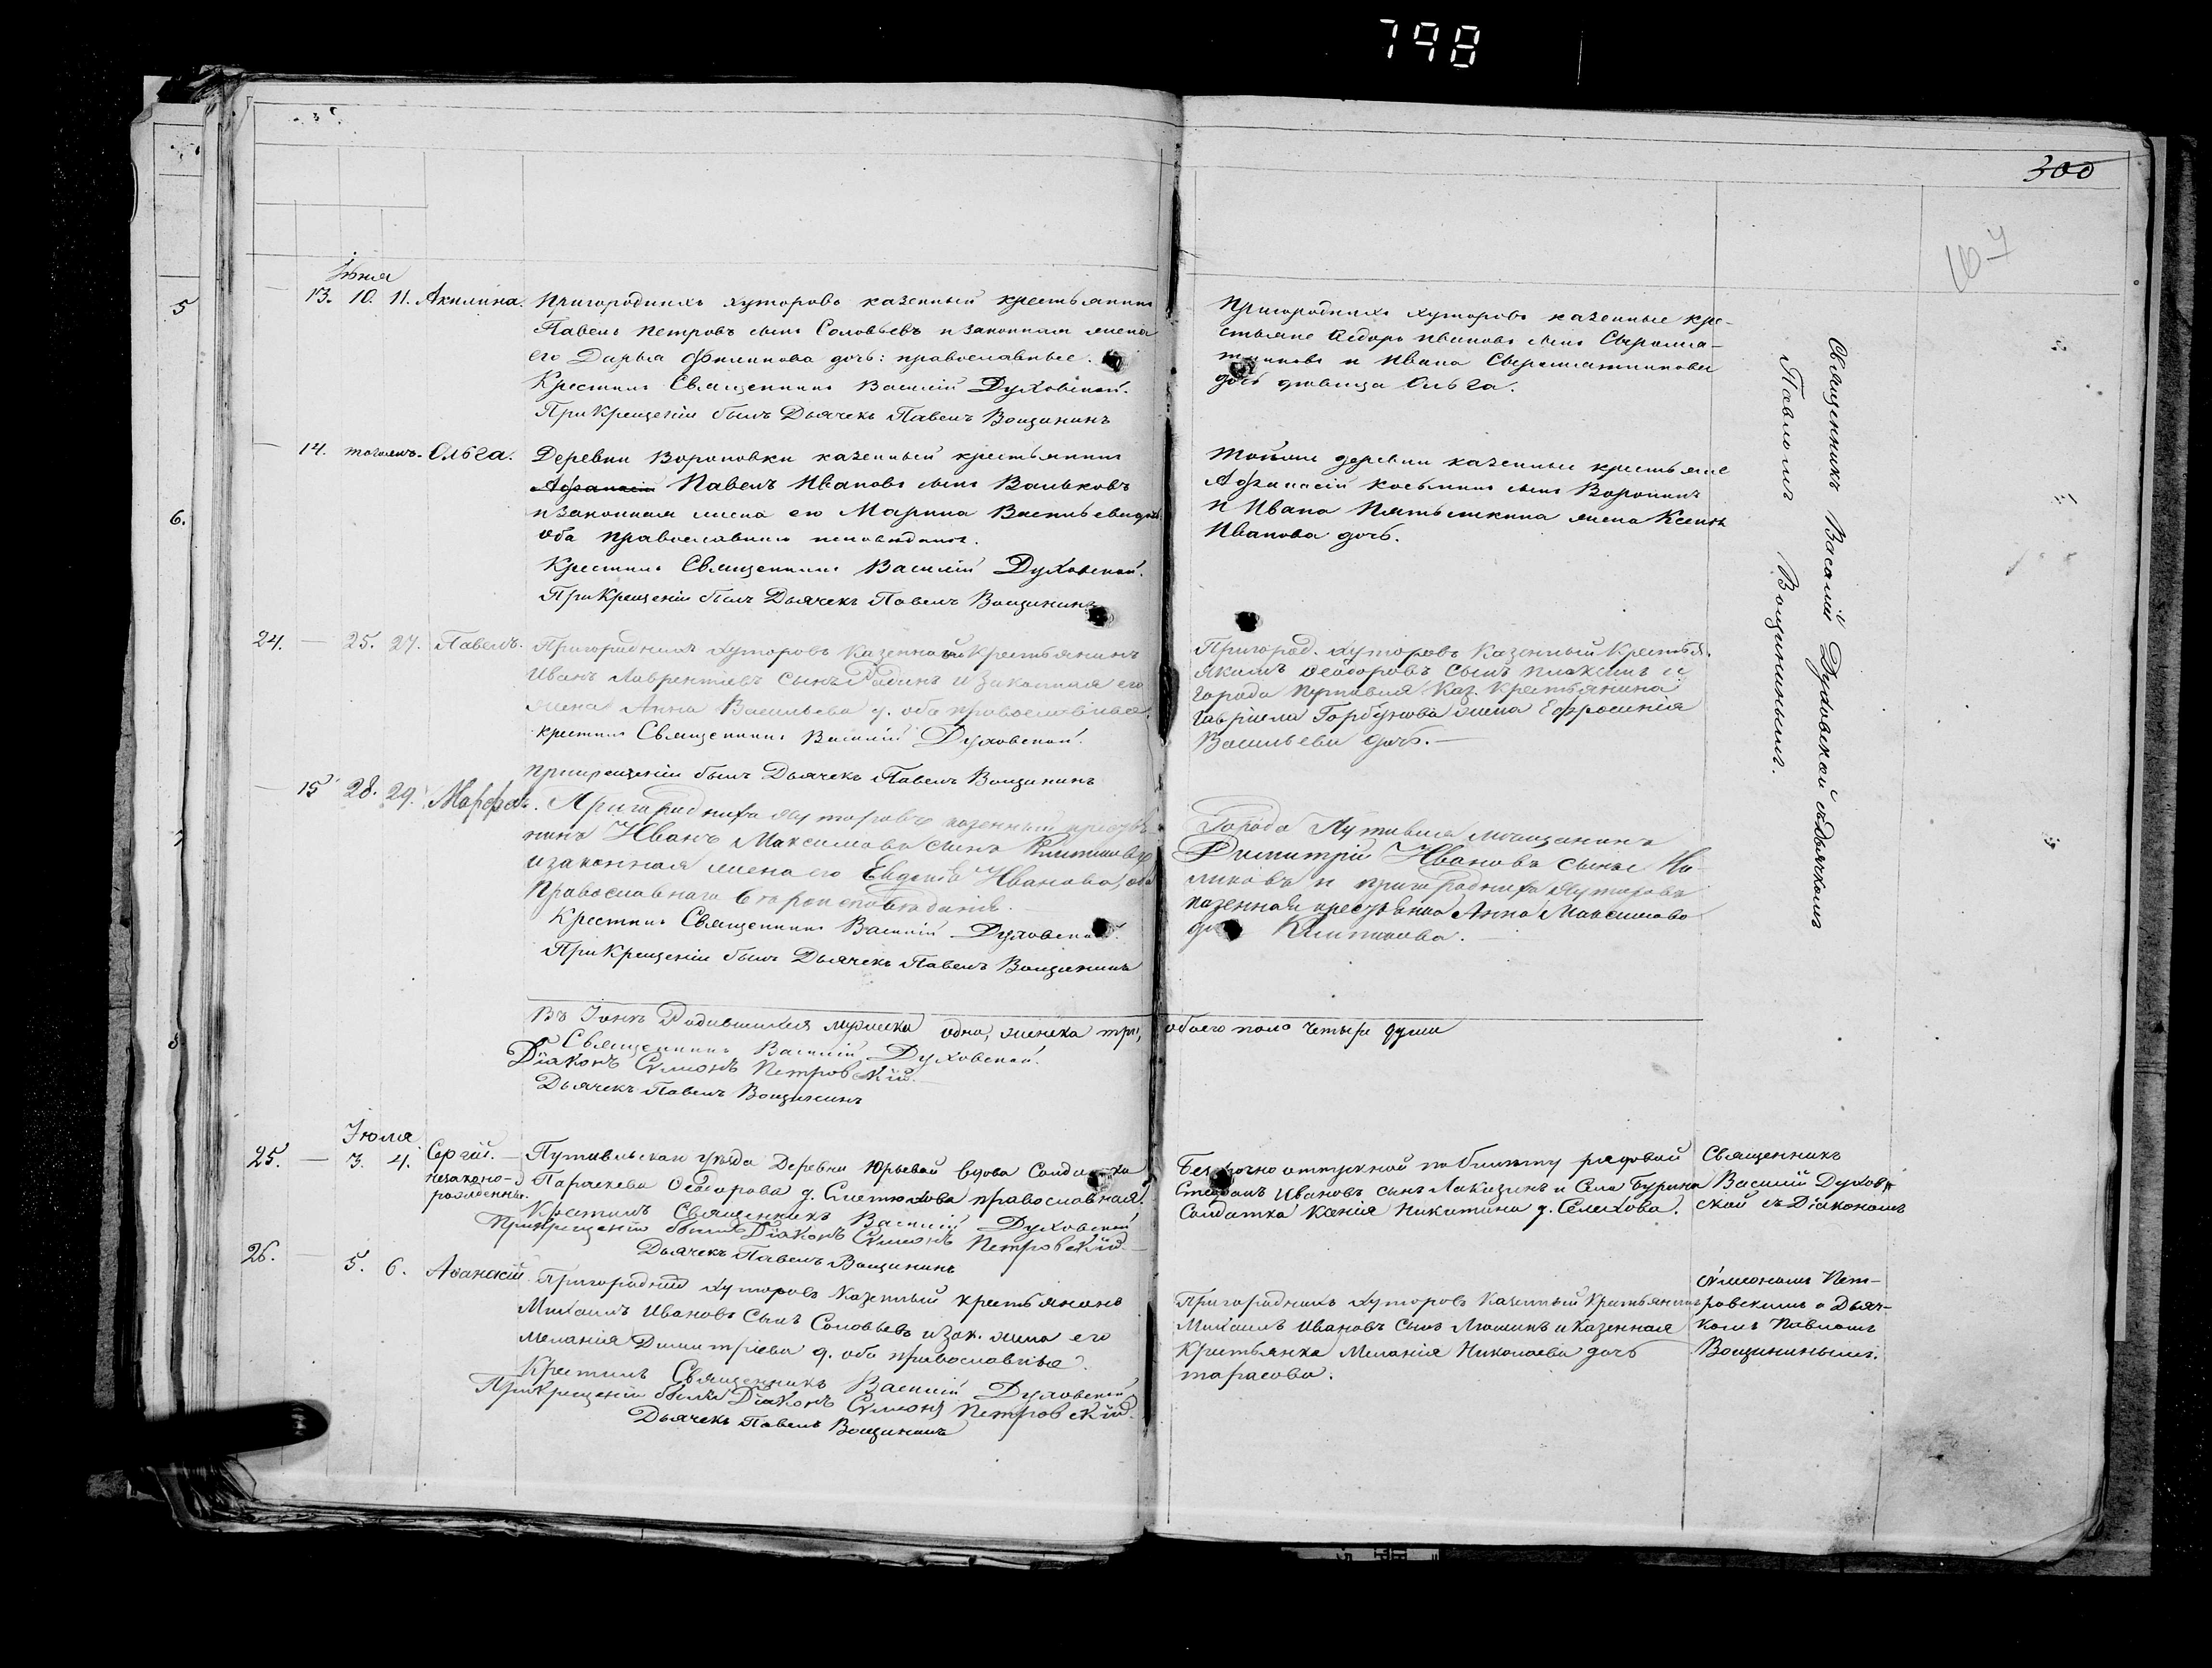 798
300
107
5
6.
7
8.
Іюня
13. 10. 11. Акилина. Пригородныхъ хуторовъ казенный крестьянинъ
Павелъ Петровъ сынъ Соловьевъ и законная жена
его Дарья Филипова дочь: православные.
Крестилъ Священникъ Василій Духовской.
При Крещеніи былъ Дьячекъ Павелъ Вощининъ
Пригородныхъ хуторовъ казенные кре-
стьяне Ѳедоръ Ивановъ сынъ
и Ивана
дочь дѣвица Ольга.
14. тогожъ. Ольга. Деревни Вороновки казенный крестьянинъ
Афанасій Павелъ Ивановъ сынъ Вальковъ
и законная жена его Марина Васильева дочь
оба православнаго исповѣданія.
Крестилъ Священникъ Василій Духовской.
При Крещеніи былъ Дьячекъ Павелъ Вощининъ
Тойже деревни казенные крестьяне
Афанасій Косьминъ сынъ Воронинъ
и Ивана жена Ксенія
Иванова дочь.
24. — 25. 27. Павелъ. Пригородныхъ хуторовъ Казенный Крестьянинъ
Иванъ Лаврентіевъ сынъ Рединъ и законная его
жена Анна Васильева д. оба православные.
Крестилъ Священникъ Василій Духовской.
При крещеніи былъ Дьячекъ Павелъ Вощининъ
Пригород. хуторовъ Казенный Крестья.
Якимъ Ѳеодоровъ сынъ и
города Путивля Каз. Крестьянина
Гавріила Горбунова жена Ефросинія
Васильева дочь. —
— 15 28. 29. Марфа. Пригороднихъ хуторовъ казенный крестья
нинъ Иванъ Максимовъ сынъ
и законная жена его Евдокія Иванова, оба
Православнаго вероисповѣданія. —
Крестилъ Священникъ Василій Духовской.
При Крещеніи былъ Дьячекъ Павелъ Вощининъ
Города Путивля мѣщанинъ
Димитрій Ивановъ сынъ
и пригороднихъ хуторовъ
казенная крестьянка Анна Максимова
Священникъ Василій Духовской съ Дьячкомъ
Павломъ Вощининымъ.
Въ Іюнѣ Родившихся мужеска одно, женска три, обоего пола четыри души
Священникъ Василій Духовской.
Діаконъ Сѵмеонъ Петровскій. —
Дьячекъ Павелъ Вощининъ
Іюля
25. — 3. 4. Сергій. — Путивльскаго уѣзда Деревни Юрьевой вдова Солдатка
незаконо- Параскева Ѳеодорова д. православная.
рожденны. Крестилъ Священникъ Василій Духовской
При крещеніи былъ Діаконъ Сѵмеонъ Петровскій. —
Дьячекъ Павелъ Вощининъ
Безсрочно отпускной по билету рядовой
Стефанъ Ивановъ сынъ Лакизинъ и Села Бурина
Солдатка Ксенія Никитина д. Селихова.
Священникъ
Василій Духов
ской съ Діакономъ
26. — 5. 6. Аѳанасій. Пригородній хуторовъ Казенный крестьянинъ
Михаилъ Ивановъ Сынъ Соловьевъ и зак. жена его
Меланія Димитріева д. оба православные.
Крестилъ Священникъ Василій Духовской
При крещеніи были Діаконъ Сѵмеонъ Петровскій.
Дьячекъ Павелъ Вощининъ
Пригороднихъ хуторовъ Казенный Крестьянинъ
Михаилъ Ивановъ сынъ и Казенная
Крестьянка Меланія Николаева дочь
тарасова.
Сѵмеономъ Пет-
ровскимъ и Дьяч-
комъ Павломъ
Вощининымъ.